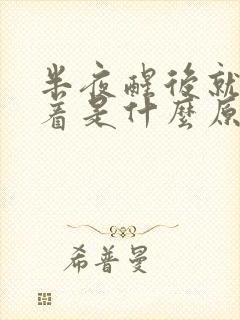 半夜醒後就
着是什麼原
希普曼